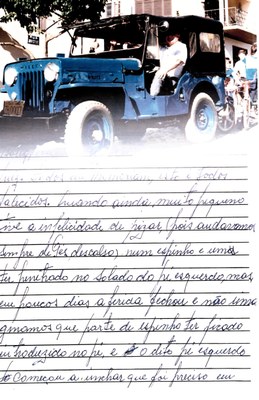 falecidos. Quando ainda, muito pequeno
tive a infelicidade de pizar (pois andavamos
sempre de pés descalso) num espinho e uma
ter penetrado no solado do pé esquerdo, mas
em poucos dias a ferida fechou e não
ginamos que parte de espinho ter ficado
introduzido no pé, e o dito pé esquerdo
Começou a inchar que foi preciso em